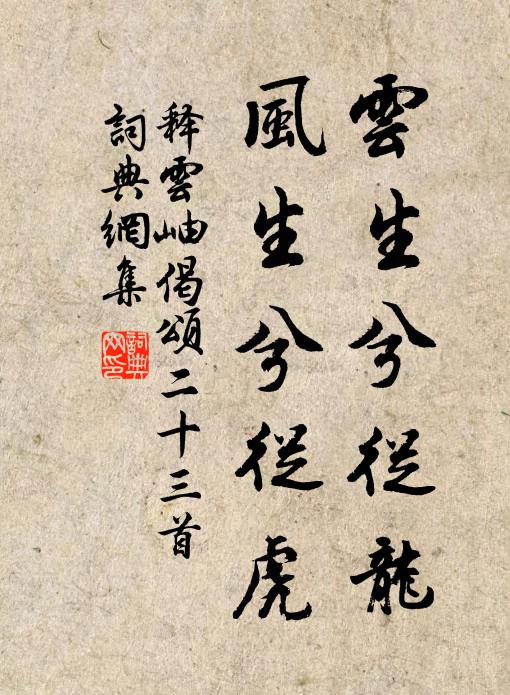 雲生兮從龍
風生兮從虎
釋雲岫偈頌二十三首
詞典網集
詞典網印